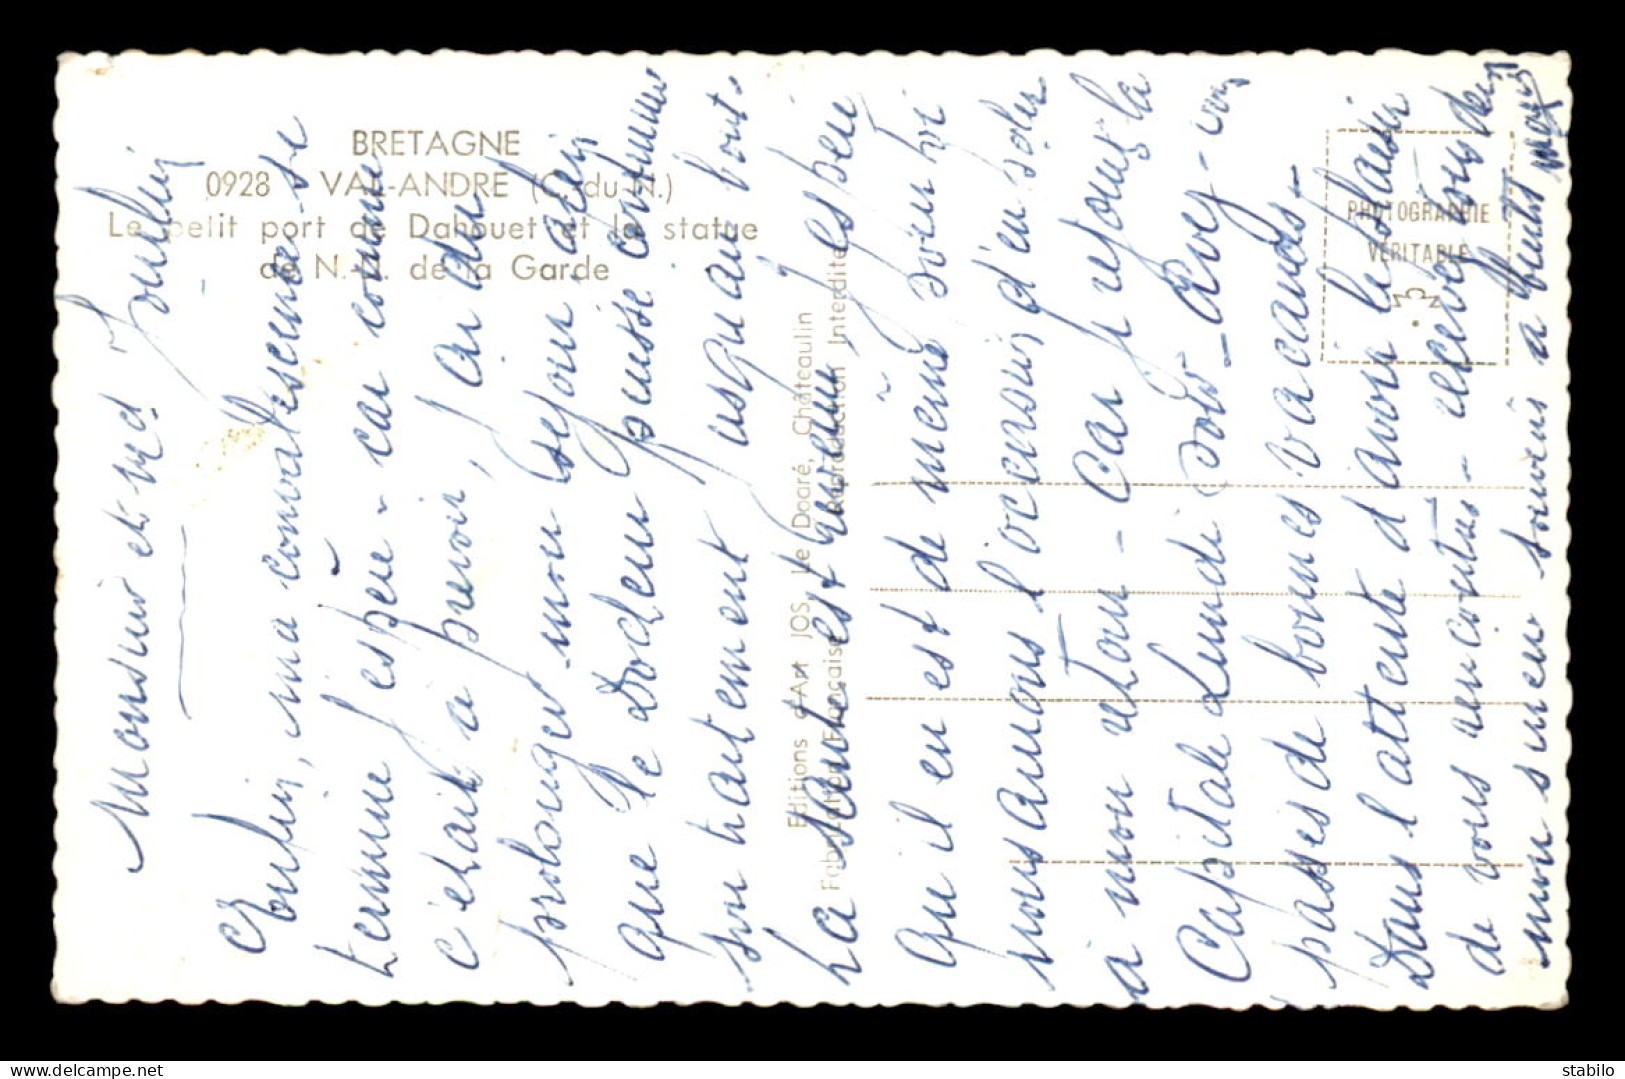 BRETAGNE
0928 - VAL-ANDRÉ (C.-du-N.)
Le petit port de Dahouet et la statue
de N.-D. de la Garde
Editions d'Art JOS Le Doaré, Châteaulin
Fabrication Française Reproduction Interdite
PHOTOGRAPHIE
VÉRITABLE
Monsieur et
Enfin, ma convalescence se
termine j'espère - car comme
c'était à prévoir, j'ai du
prolonger mon séjour afin
que le Docteur puisse continuer
son traitement jusqu'au bout.
La santé est revenue j'espère
qu'il en est de même pour
nous aurons l'occasion d'en
à mon retour - car je rejoins la
Capitale Lundi soir - Avez-vous
passés de bonnes vacances -
Dans l'attente d'avoir le plaisir
de vous rencontrer - recevez tous deux
mon meilleur souvenir à bientôt
stabilo